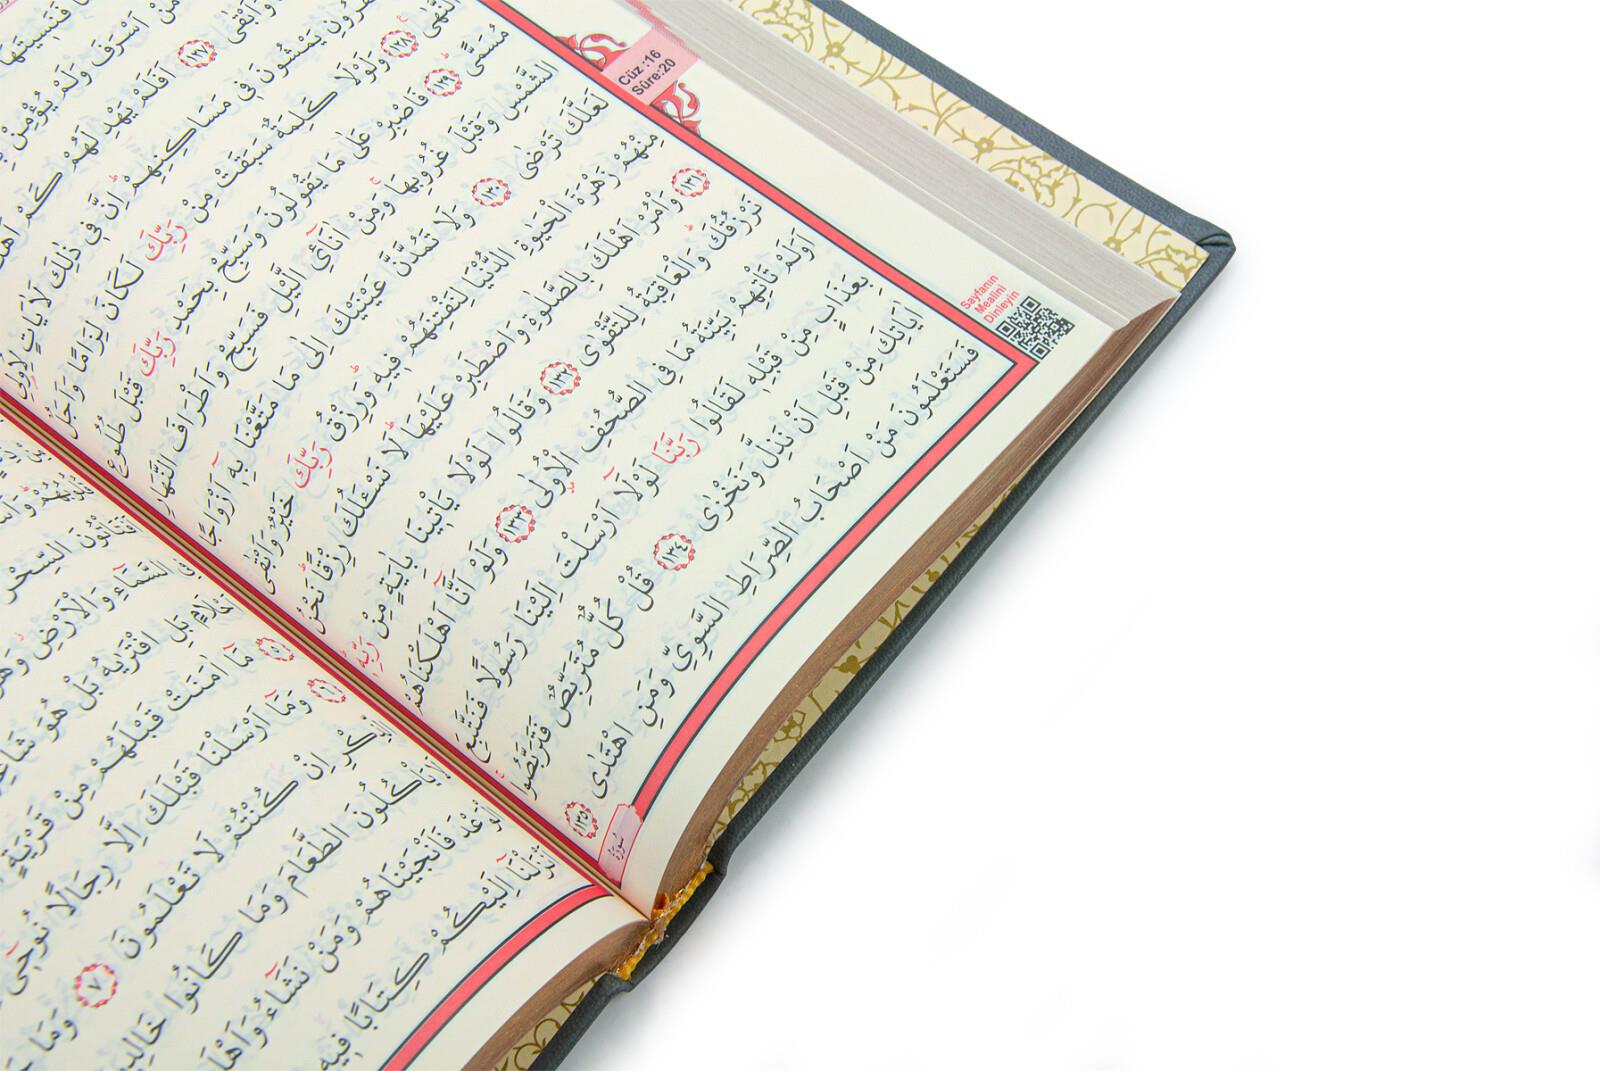 فَنَسِيتَهَا
مَنْ اَسْرَفَ وَلَمْ يُؤْمِنْ
وَاَبْقٰى ﴿١٢٧﴾ اَفَلَمْ يَهْدِ لَهُمْ كَمْ
يَمْشُونَ فِى مَسَاكِنِهِمْ اِنَّ فِى ذٰلِكَ لَاٰيَاتٍ لِاُولِى
النُّهٰى ﴿١٢٨﴾ وَلَوْلَا كَلِمَةٌ سَبَقَتْ مِنْ رَبِّكَ لَكَانَ لِزَامًا وَاَجَلٌ
مُسَمًّى ﴿١٢٩﴾ فَاصْبِرْ عَلٰى مَا يَقُولُونَ وَسَبِّحْ بِحَمْدِ رَبِّكَ قَبْلَ طُلُوعِ
الشَّمْسِ وَقَبْلَ غُرُوبِهَا وَمِنْ اٰنَآئِ الَّيْلِ فَسَبِّحْ وَاَطْرَافَ النَّهَارِ
لَعَلَّكَ تَرْضٰى ﴿١٣٠﴾ وَلَا تَمُدَّنَّ عَيْنَيْكَ اِلٰى مَا مَتَّعْنَا بِهٖٓ اَزْوَاجًا
مِنْهُمْ زَهْرَةَ الْحَيٰوةِ الدُّنْيَا لِنَفْتِنَهُمْ فِيهِ وَرِزْقُ رَبِّكَ خَيْرٌ وَاَبْقٰى
﴿١٣١﴾ وَأْمُرْ اَهْلَكَ بِالصَّلٰوةِ وَاصْطَبِرْ عَلَيْهَا لَا نَسْـَٔلُكَ رِزْقًا نَحْنُ
نَرْزُقُكَ وَالْعَاقِبَةُ لِلتَّقْوٰى ﴿١٣٢﴾ وَقَالُوا لَوْلَا يَأْتِينَا بِاٰيَةٍ مِنْ رَبِّهٖ
اَوَلَمْ تَأْتِهِمْ بَيِّنَةُ مَا فِى الصُّحُفِ الْاُولٰى ﴿١٣٣﴾ وَلَوْ اَنَّٓا اَهْلَكْنَاهُمْ
بِعَذَابٍ مِنْ قَبْلِهٖ لَقَالُوا رَبَّنَا لَوْلَٓا اَرْسَلْتَ اِلَيْنَا رَسُولًا فَنَتَّبِعَ
اٰيَاتِكَ مِنْ قَبْلِ اَنْ نَذِلَّ وَنَخْزٰى ﴿١٣٤﴾ قُلْ كُلٌّ مُتَرَبِّصٌ فَتَرَبَّصُوا
فَسَتَعْلَمُونَ مَنْ اَصْحَابُ الصِّرَاطِ السَّوِىِّ وَمَنِ اهْتَدٰى ﴿١٣٥﴾
سُورَةُ
Cüz :16
Sûre:20
Sayfanın
Mealini
Dinleyin
اَفَتَأْتُونَ السِّحْرَ
فِى السَّمَٓاءِ وَالْاَرْضِ وَهُوَ
اَحْلَامٍ بَلِ افْتَرٰيهُ بَلْ هُوَ شَاعِرٌ
﴿٥﴾ مَٓا اٰمَنَتْ قَبْلَهُمْ مِنْ قَرْيَةٍ
﴿٦﴾ وَمَٓا اَرْسَلْنَا قَبْلَكَ اِلَّا رِجَالًا نُوحِٓى
الذِّكْرِ اِنْ كُنْتُمْ لَا تَعْلَمُونَ ﴿٧﴾ وَمَا
لَا يَأْكُلُونَ الطَّعَامَ وَمَا كَانُوا خَالِدِينَ
الْوَعْدَ فَاَنْجَيْنَاهُمْ وَمَنْ نَشَٓاءُ وَاَهْلَكْنَا
اَنْزَلْنَٓا اِلَيْكُمْ كِتَابًا فِيهِ